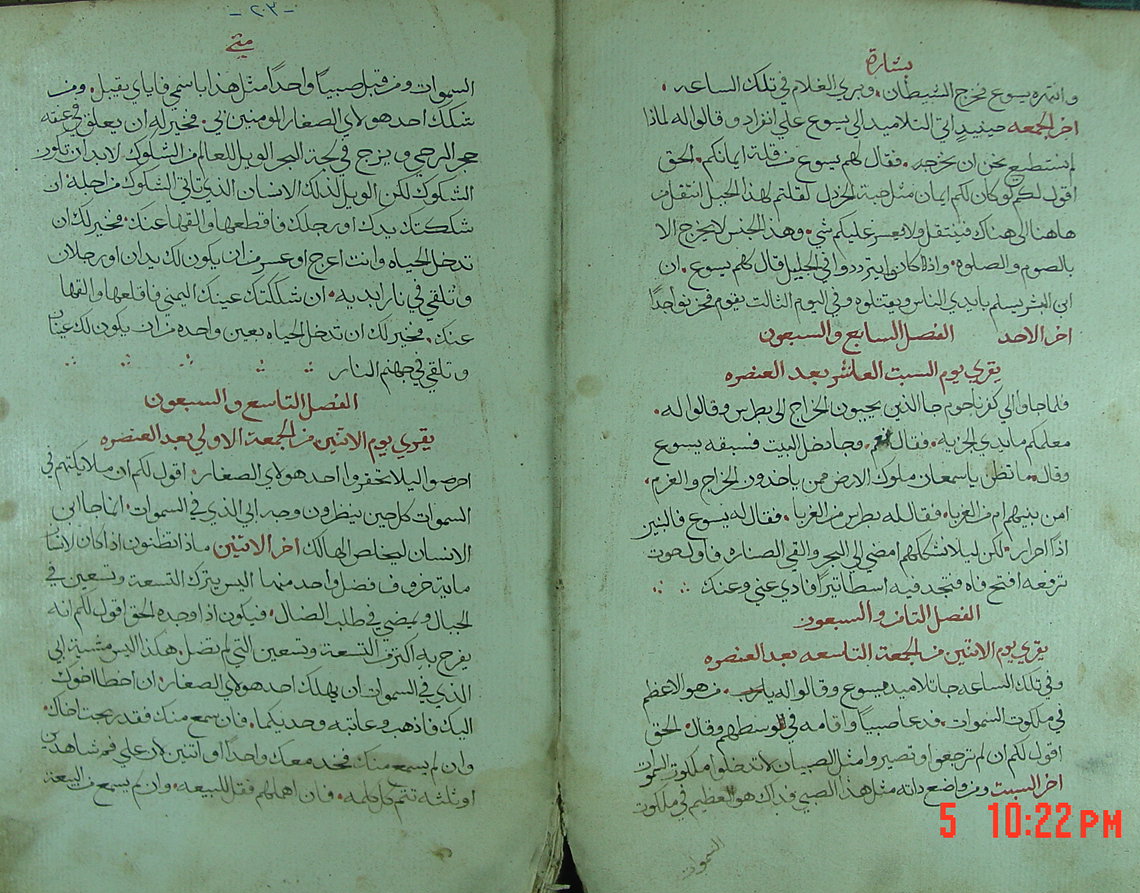 بشارة
وانتهره يسوع فخرج الشيطان. وبري الغلام في تلك الساعه.
اخر الجمعه حينيذ اتي التلاميد الي يسوع علي انفراد وقالوا له لماذا
لم نستطيع نحن ان نخرجه. فقال لهم يسوع من قلة ايمانكم. الحق
اقول لكم لو كان لكم ايمان مثل حبة الخردل لقلتم لهذا الجبل انتقل من
هاهنا الي هناك فينتقل ولا يعسر عليكم شي. وهدا الجنس لا يخرج الا
بالصوم والصلوه. واذ كانوا يترددوا في الجليل قال لهم يسوع. ان
ابن البشر يسلم بايدي الناس ويقتلوه وفي اليوم الثالت يقوم فحزنوا جدًا
اخر الاحد الفصل السابع والسبعون
يقري يوم السبت العاشر بعد العنصره
فلما جاوا الي كفرناحوم جا الذين يجيبون الخراج الي بطرس وقالوا له.
معلمكم ما يدي الجزيه. فقال نعم. وجا دخل البيت فسبقه يسوع
وقال. ما تظن يا سمعان ملوك الارض ممن ياخدون الخراج والغرم.
امن بنيهم ام من الغربا. فقال له بطرس من الغربا. فقال له يسوع فالبنين
اذًا احرار. لكن ليلا نشككهم امضي الي البحر والقي الصناره فاول حوت
ترفعه افتح فاه فتجد فيه اسطاتيرًا فادي عني وعنك
الفصل التامن والسبعون
يقري يوم الاتنين من الجمعة التاسعه بعد العنصره
وفي تلك الساعه جا تلاميد يسوع وقالوا له يا رب. من هو الاعظم
في ملكوت السموات. فدعا صبيًا واقامه في وسطهم وقال. الحق
اقول لكم ان لم ترجعوا وتصيروا مثل الصبيان لا تدخلوا ملكوت السموات
اخر السبت ومن واضع داته مثل هذا الصبي فداك هو العظيم في ملكوت
السموات
-٢٠٣-
متي
السموات ومن قبل صبيًا واحدًا مثل هذا باسمي فاياي يقبل. ومن
شكك احد هولاي الصغار المومنين بي. فخير له ان يعلق في عنقه
حجر الرحي ويزج في لجة البحر الويل للعالم من الشكوك لابد ان تكون
الشكوك لكن الويل لذلك الانسان الذي تاتي الشكوك من اجله ان
شككتك يدك او رجلك فاقطعها والقها عنك. فخير لك ان
تدخل الحياه وانت اعرج او عسم من ان يكون لك يدان او رجلان
وتلقي في نار ابديه. ان شككتك عينك اليمني فاقلعها والقها
عنك. فخير لك ان تدخل الحياه بعين واحده من ان يكون لك عينان
وتلقي في جهنم النار
الفصل التاسع والسبعون
يقري يوم الاتنين من الجمعة الاولي بعد العنصره
احرصوا ليلا تحقروا احد هولاي الصغار. اقول لكم ان ملايكتهم في
السموات كل حين ينظرون وجه ابي الذي في السموات. انما جا ابن
الانسان ليخلص الهالك اخر الاتنين ماذا تظنون اذا كان لانسان
ماية خروف فضل واحد منها اليس يترك التسعة وتسعين في
الجبال ويمضي في طلب الضال. فيكون اذا وجده الحق اقول لكم انه
يفرح به اكتر من التسعة وتسعين التي لم تضل هكذا ليس مشية ابي
الذي في السموات ان يهلك احد هولاي الصغار. ان اخطا اخوك
اليك فاذهب وعاتبه وحديكما. فان سمع منك فقد ربحت اخاك.
وان لم يسمع منك فخد معك واحدًا او اتنين لان علي فم شاهدين
او تلته تتم كل كلمه. فان اهملهم فقل للبيعه. وان لم يسمع من البيعه
5 10:22 PM